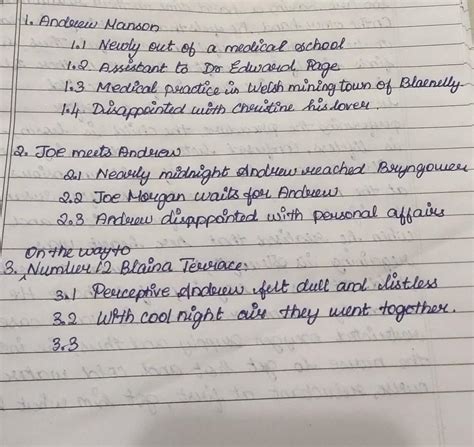 1. Andrew Manson
1.1 Newly out of a medical school
1.2 Assistant to Dr Edward Page
1.3 Medical practice in Welsh mining town of Blaenelly
1.4 Disappointed with Christine his lover
2. Joe meets Andrew
2.1 Nearly midnight Andrew reached Bryngower
2.2 Joe Morgan waits for Andrew
2.3 Andrew disappointed with personal affairs
On the way to
3. ^ Number 12 Blaina Terrace
3.1 Perceptive Andrew felt dull and listless
3.2 With cool night air they went together.
3.3